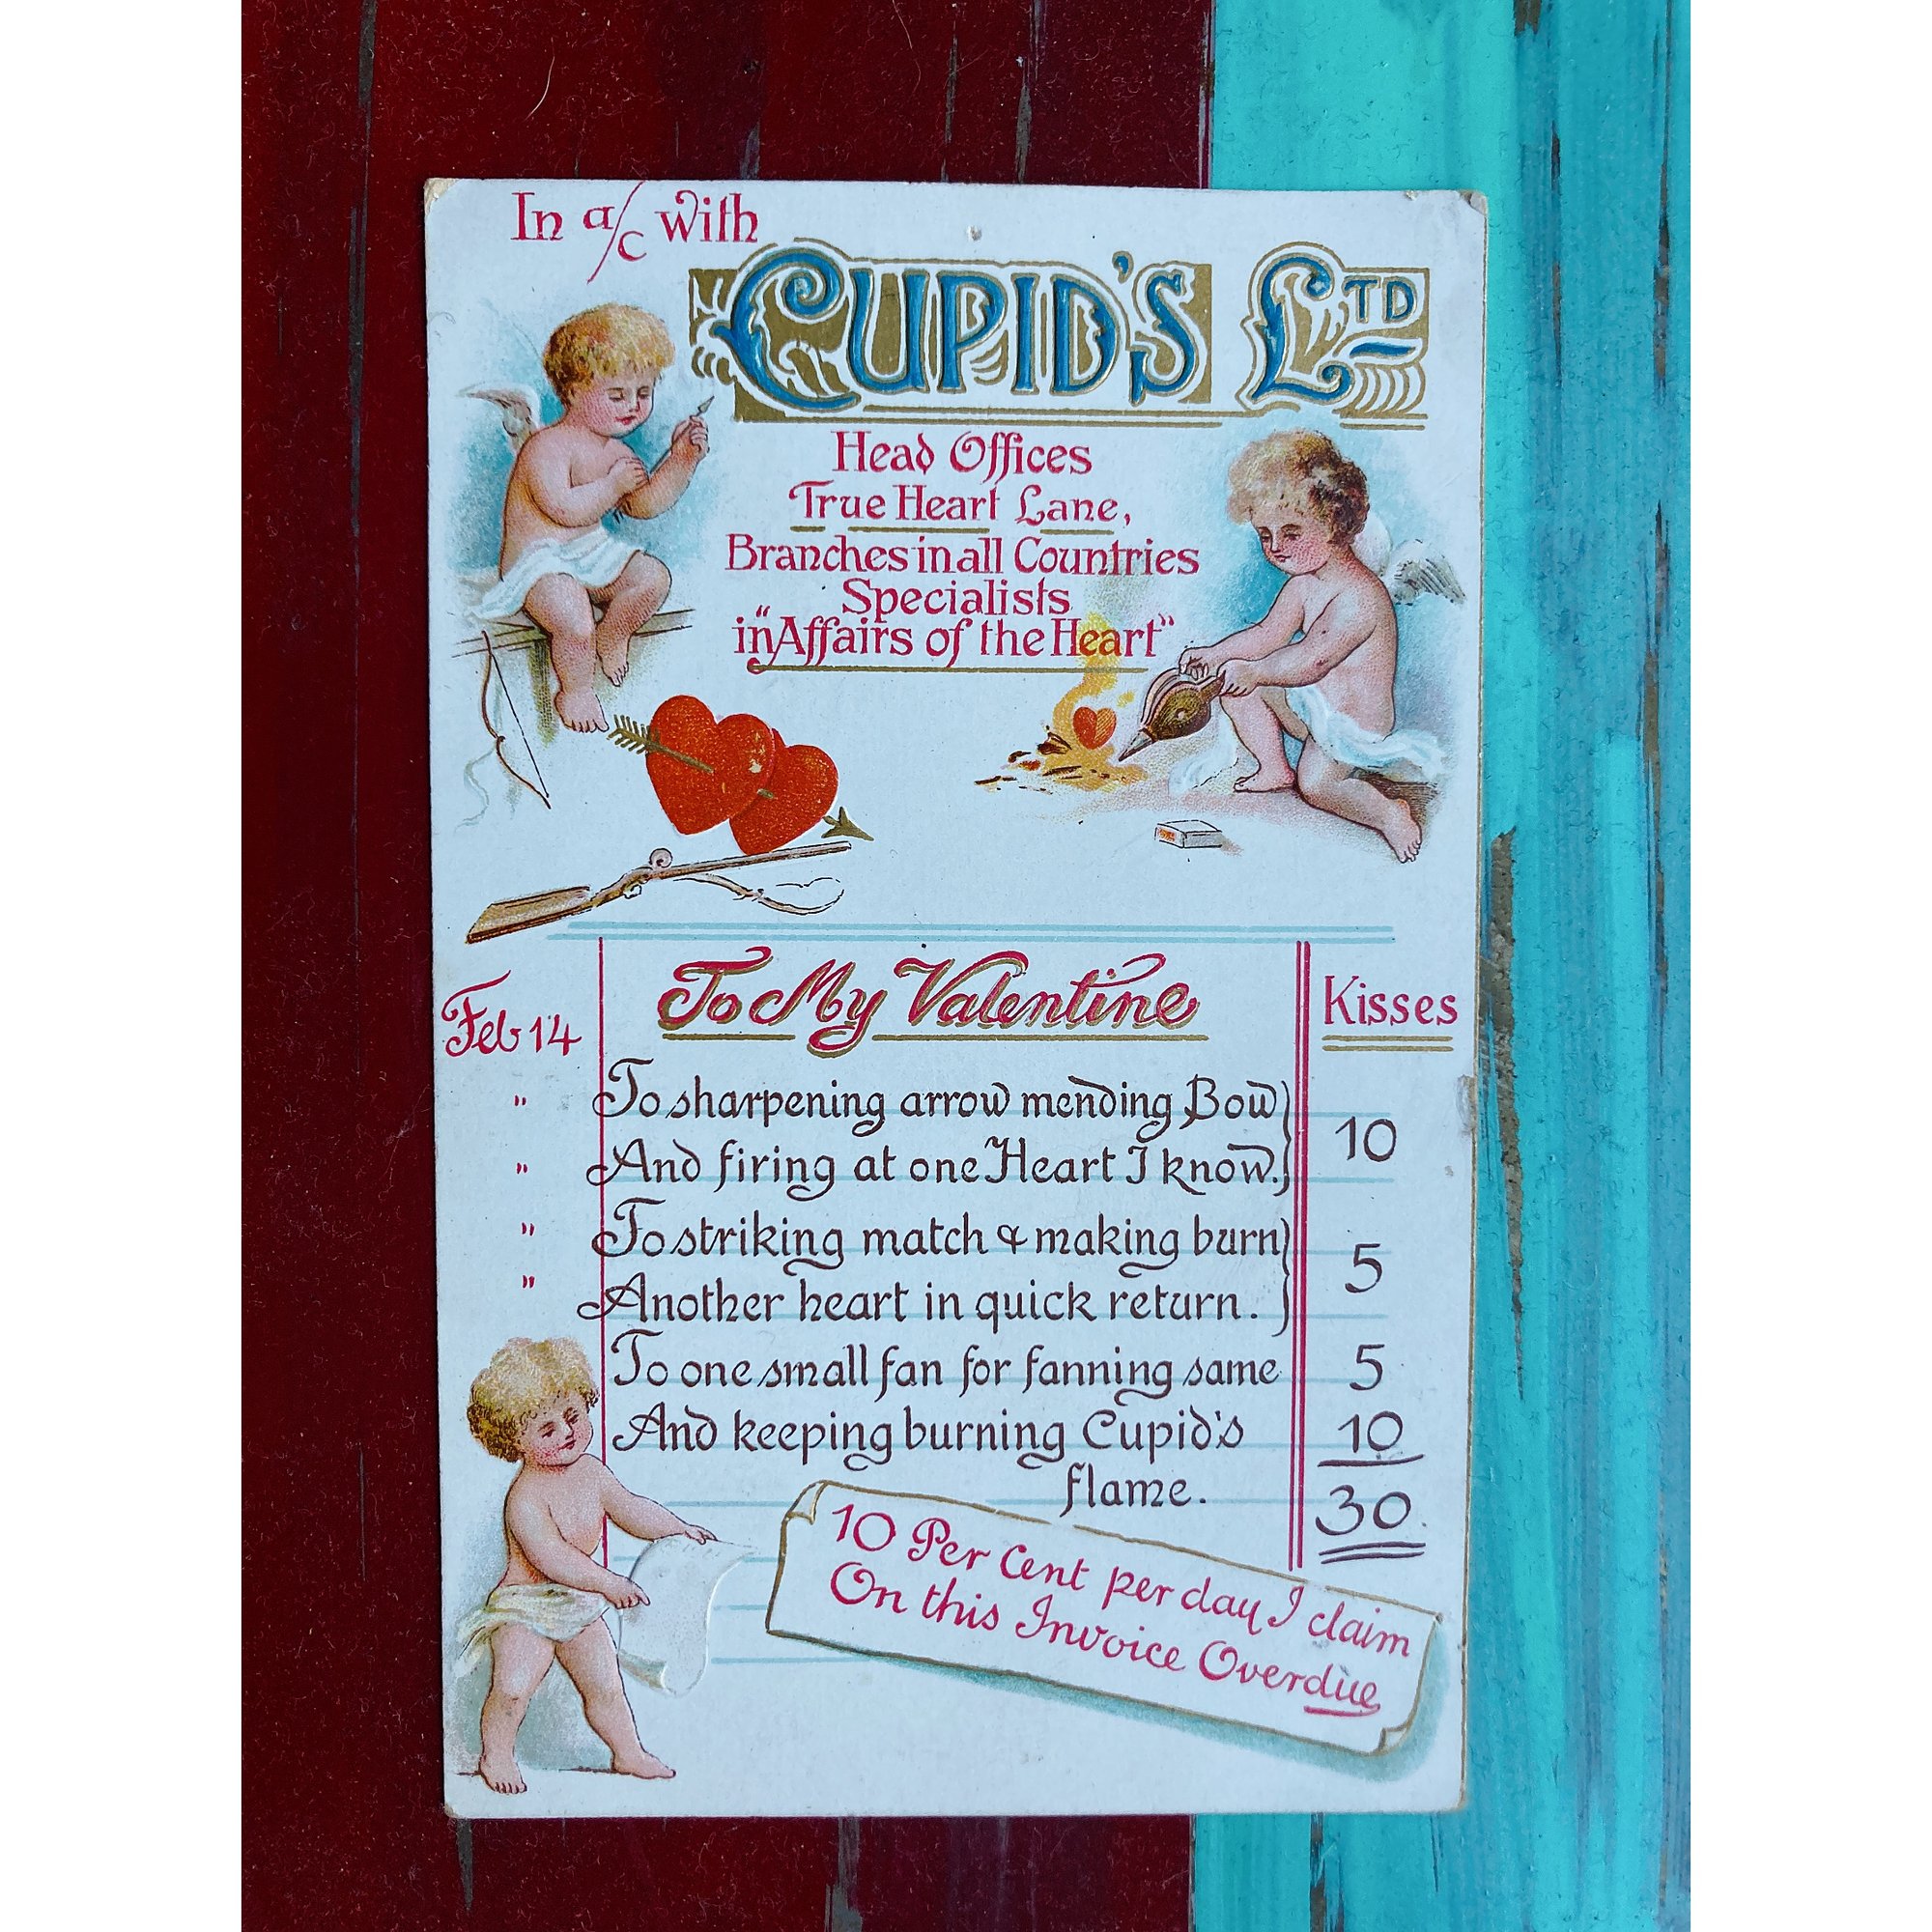 In a/c with
CUPID'S LTD
Head Offices
True Heart Lane,
Branches in all Countries
Specialists
in "Affairs of the Heart"
To My Valentine
Kisses
Feb 14
" To sharpening arrow mending Bow
10
" And firing at one Heart I know.
" To striking match & making burn
5
" Another heart in quick return.
To one small fan for fanning same 5
And keeping burning Cupid's 10
flame.
30
10 Per Cent per day I claim
On this Invoice Overdue